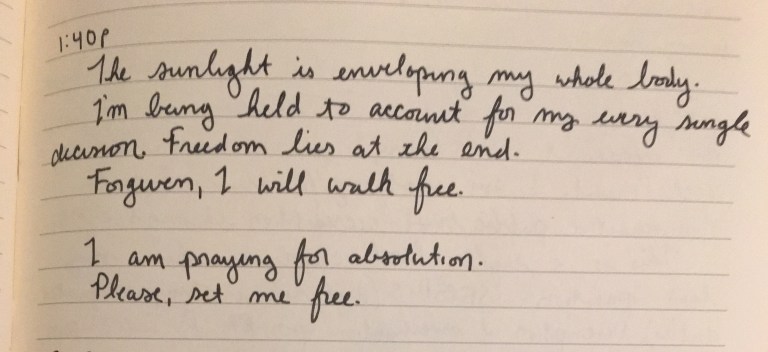 1:40p
The sunlight is enveloping my whole body.
I'm being held to account for my every single
decision. Freedom lies at the end.
Forgiven, I will walk free.
I am praying for absolution.
Please, set me free.